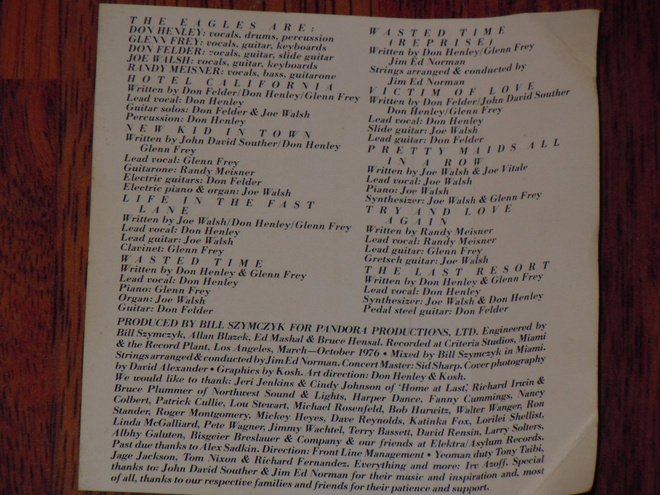 THE EAGLES ARE:
DON HENLEY: vocals, drums, percussion
GLENN FREY: vocals, guitar, keyboards
DON FELDER: vocals, guitar, slide guitar
JOE WALSH: vocals, guitar, keyboards
RANDY MEISNER: vocals, bass, guitarone
HOTEL CALIFORNIA
Written by Don Felder/Don Henley/Glenn Frey
Lead vocal: Don Henley
Guitar solos: Don Felder & Joe Walsh
Percussion: Don Henley
NEW KID IN TOWN
Written by John David Souther/Don Henley
Glenn Frey
Lead vocal: Glenn Frey
Guitarone: Randy Meisner
Electric guitars: Don Felder
Electric piano & organ: Joe Walsh
LIFE IN THE FAST
LANE
Written by Joe Walsh/Don Henley/Glenn Frey
Lead vocal: Don Henley
Lead guitar: Joe Walsh
Clavinet: Glenn Frey
WASTED TIME
Written by Don Henley & Glenn Frey
Lead vocal: Don Henley
Piano: Glenn Frey
Organ: Joe Walsh
Guitar: Don Felder
WASTED TIME
(REPRISE)
Written by Don Henley/Glenn Frey
Jim Ed Norman
Strings arranged & conducted by
Jim Ed Norman
VICTIM OF LOVE
Written by Don Felder/John David Souther
Don Henley/Glenn Frey
Lead vocal: Don Henley
Slide guitar: Joe Walsh
Lead guitar: Don Felder
PRETTY MAIDS ALL
IN A ROW
Written by Joe Walsh & Joe Vitale
Lead vocal: Joe Walsh
Piano: Joe Walsh
Synthesizer: Joe Walsh & Glenn Frey
TRY AND LOVE
AGAIN
Written by Randy Meisner
Lead vocal: Randy Meisner
Lead guitar: Glenn Frey
Gretsch guitar: Joe Walsh
THE LAST RESORT
Written by Don Henley & Glenn Frey
Lead vocal: Don Henley
Synthesizer: Joe Walsh & Don Henley
Pedal steel guitar: Don Felder
PRODUCED BY BILL SZYMCZYK FOR PANDORA PRODUCTIONS, LTD. Engineered by
Bill Szymczyk, Allan Blazek, Ed Mashal & Bruce Hensal. Recorded at Criteria Studios, Miami
& the Record Plant, Los Angeles, March—October 1976 • Mixed by Bill Szymczyk in Miami.
Strings arranged & conducted by Jim Ed Norman. Concert Master: Sid Sharp. Cover photography
by David Alexander • Graphics by Kosh. Art direction: Don Henley & Kosh.
We would like to thank: Jeri Jenkins & Cindy Johnson of 'Home at Last,' Richard Irwin &
Bruce Plummer of Northwest Sound & Lights, Harper Dance, Fanny Cummings, Nancy
Colbert, Patrick Cullie, Lou Stewart, Michael Rosenfeld, Bob Hurwitz, Walter Wanger, Ron
Stander, Roger Montgomery, Mickey Heyes, Dave Reynolds, Katinka Fox, Lorilei Shellist,
Linda McGalliard, Pete Wagner, Jimmy Wachtel, Terry Bassett, David Rensin, Larry Solters,
Albhy Galuten, Bisgeier Breslauer & Company & our friends at Elektra/Asylum Records.
Past due thanks to Alex Sadkin. Direction: Front Line Management • Yeoman duty Tony Taibi,
Jage Jackson, Tom Nixon & Richard Fernandez. Everything and more: Irv Azoff. Special
thanks to: John David Souther & Jim Ed Norman for their music and inspiration and, most
of all, thanks to our respective families and friends for their patience and support.